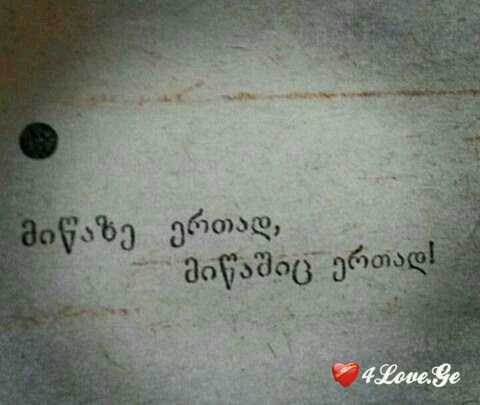 მიწაზე ერთად,
მიწაშიც ერთად!
4Love.Ge